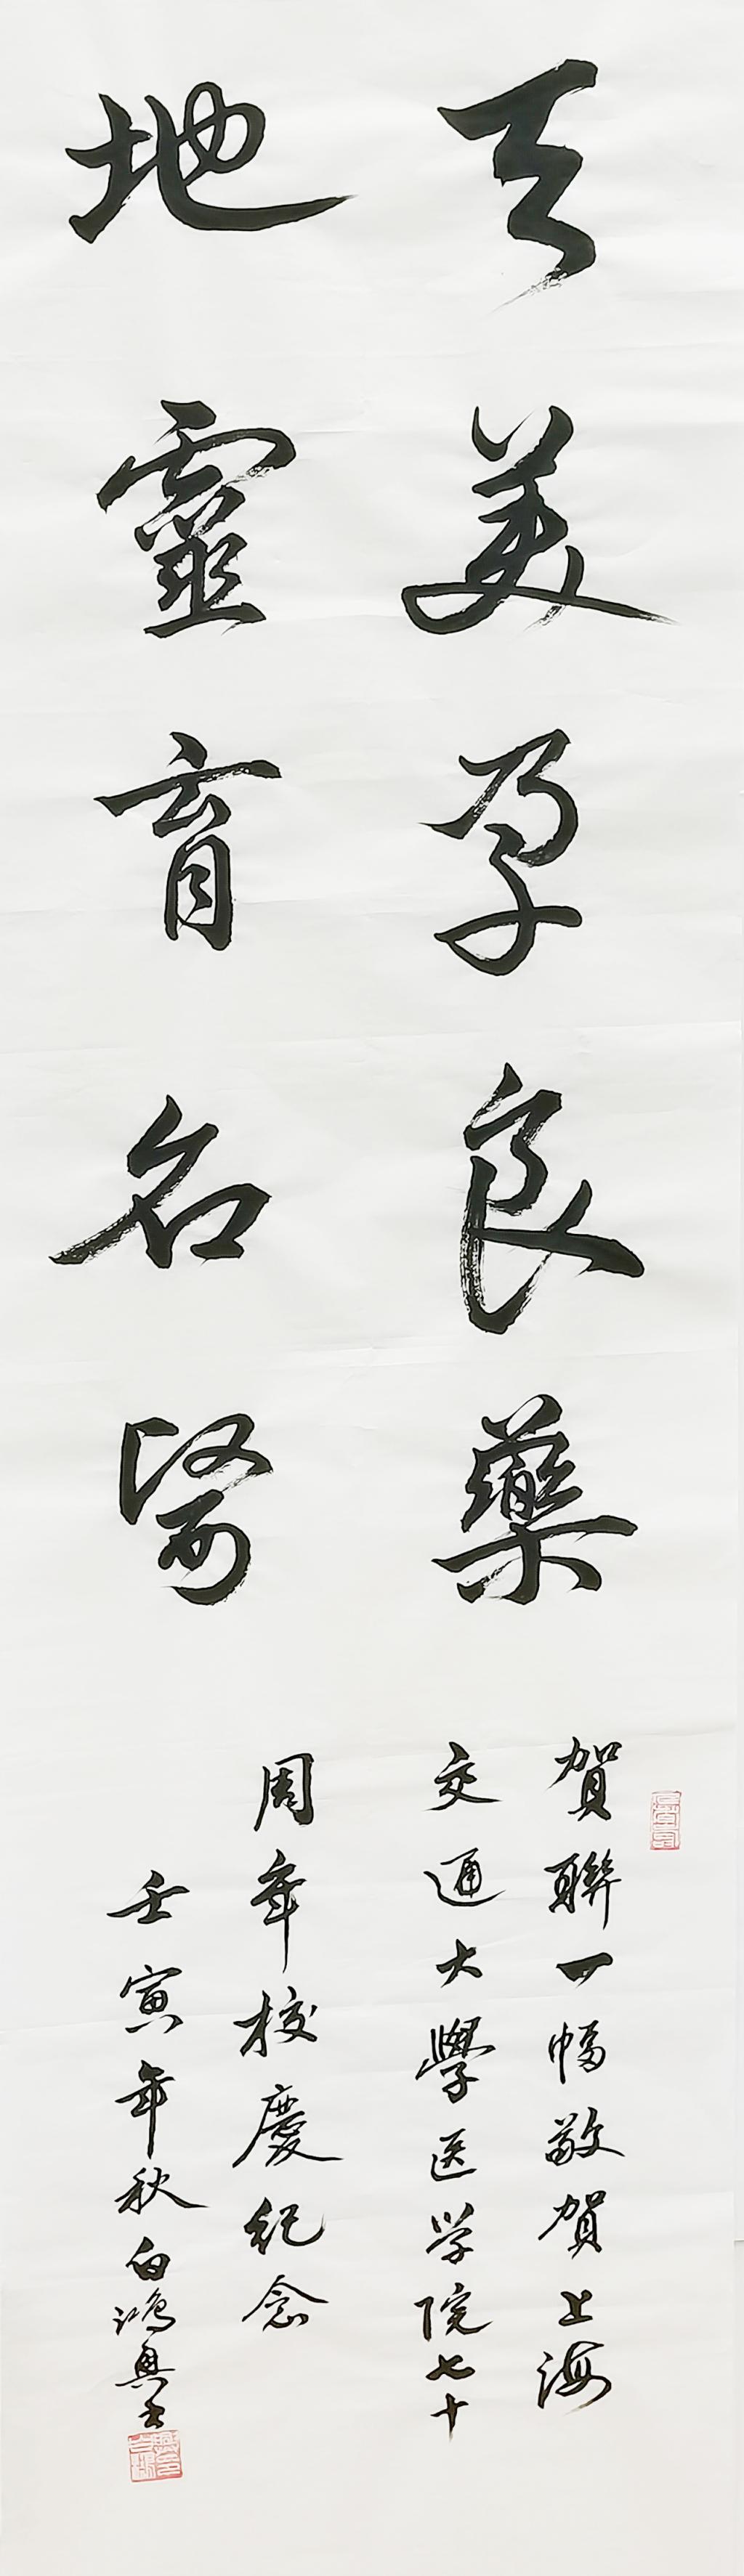 天美孕良藥
地靈育名醫
賀聯一幅敬賀上海
交通大學医学院七十
周年校慶纪念
壬寅年秋白鴻真书